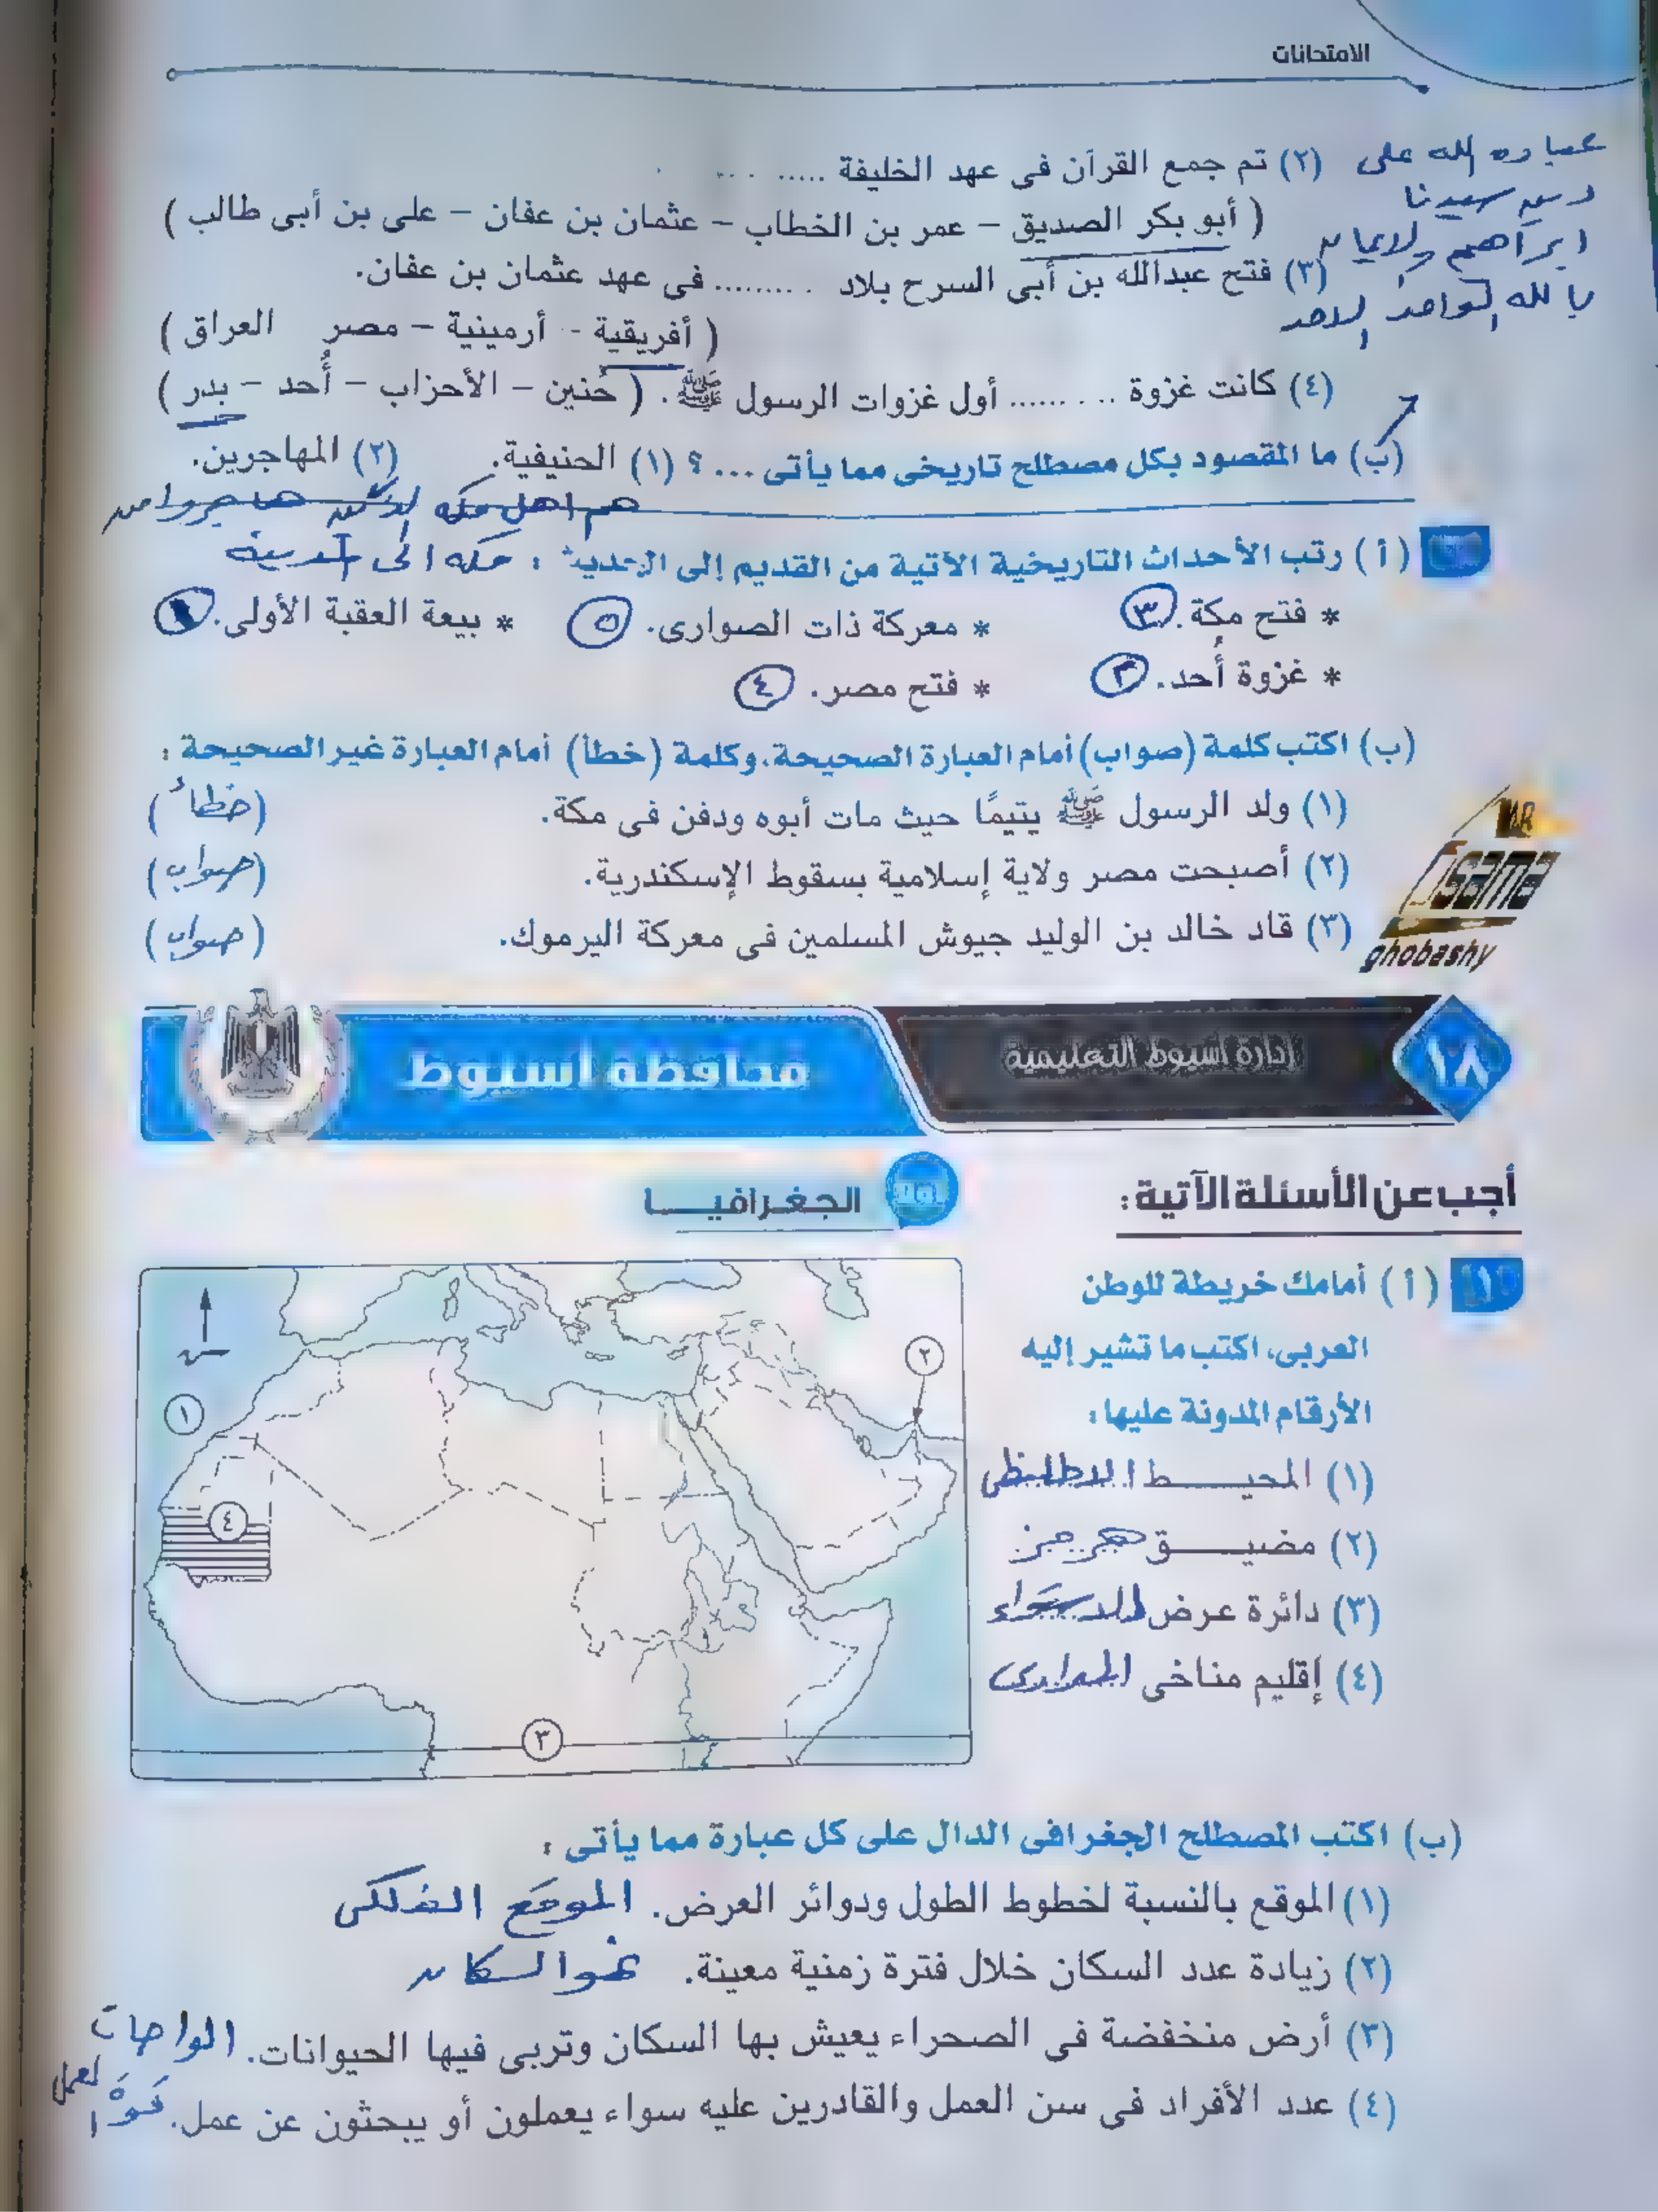 الامتحانات
(٢) تم جمع القرآن فى عهد الخليفة ..... . ..
( أبو بكر الصديق – عمر بن الخطاب – عثمان بن عفان – على بن أبى طالب )
(٣) فتح عبدالله بن أبى السرح بلاد . ........ فى عهد عثمان بن عفان.
( أفريقية - أرمينية – مصر العراق )
(٤) كانت غزوة .. . ...... أول غزوات الرسول ﷺ. ( حُنين – الأحزاب – أُحد – بدر )
عباده الله على
دين سيدنا
ابراهيم والايمان
بالله الواحد الاحد
(ب) ما المقصود بكل مصطلح تاريخى مما يأتى ... ؟ (١) الحنيفية. (٢) المهاجرين.
هم اهل مكه الذين هاجروا من
مكه الى المدينة
(أ) رتب الأحداث التاريخية الآتية من القديم إلى الحديث :
* فتح مكة. ٣ * معركة ذات الصوارى. ٥ * بيعة العقبة الأولى. ١
* غزوة أُحد. ٢ * فتح مصر. ٤
(ب) اكتب كلمة (صواب) أمام العبارة الصحيحة، وكلمة (خطأ) أمام العبارة غير الصحيحة :
(١) ولد الرسول ﷺ يتيمًا حيث مات أبوه ودفن فى مكة. (خطأ)
(٢) أصبحت مصر ولاية إسلامية بسقوط الإسكندرية. (صواب)
(٣) قاد خالد بن الوليد جيوش المسلمين فى معركة اليرموك. (صواب)
MR
Osama
ghobashy
١٨ إدارة أسيوط التعليمية محافظة أسيوط
أجب عن الأسئلة الآتية:
أولًا الجغرافيــا
١ (أ) أمامك خريطة للوطن
العربى، اكتب ما تشير إليه
الأرقام المدونة عليها :
(١) المحيـــط الاطلنطى
(٢) مضيـــق هرمز
(٣) دائرة عرض الاستواء
(٤) إقليم مناخى المدارى
١
٢
٤
٣
(ب) اكتب المصطلح الجغرافى الدال على كل عبارة مما يأتى :
(١) الموقع بالنسبة لخطوط الطول ودوائر العرض. الموقع الفلكى
(٢) زيادة عدد السكان خلال فترة زمنية معينة. نمو السكان
(٣) أرض منخفضة فى الصحراء يعيش بها السكان وتربى فيها الحيوانات. الواحات
(٤) عدد الأفراد فى سن العمل والقادرين عليه سواء يعملون أو يبحثون عن عمل. قوة العمل